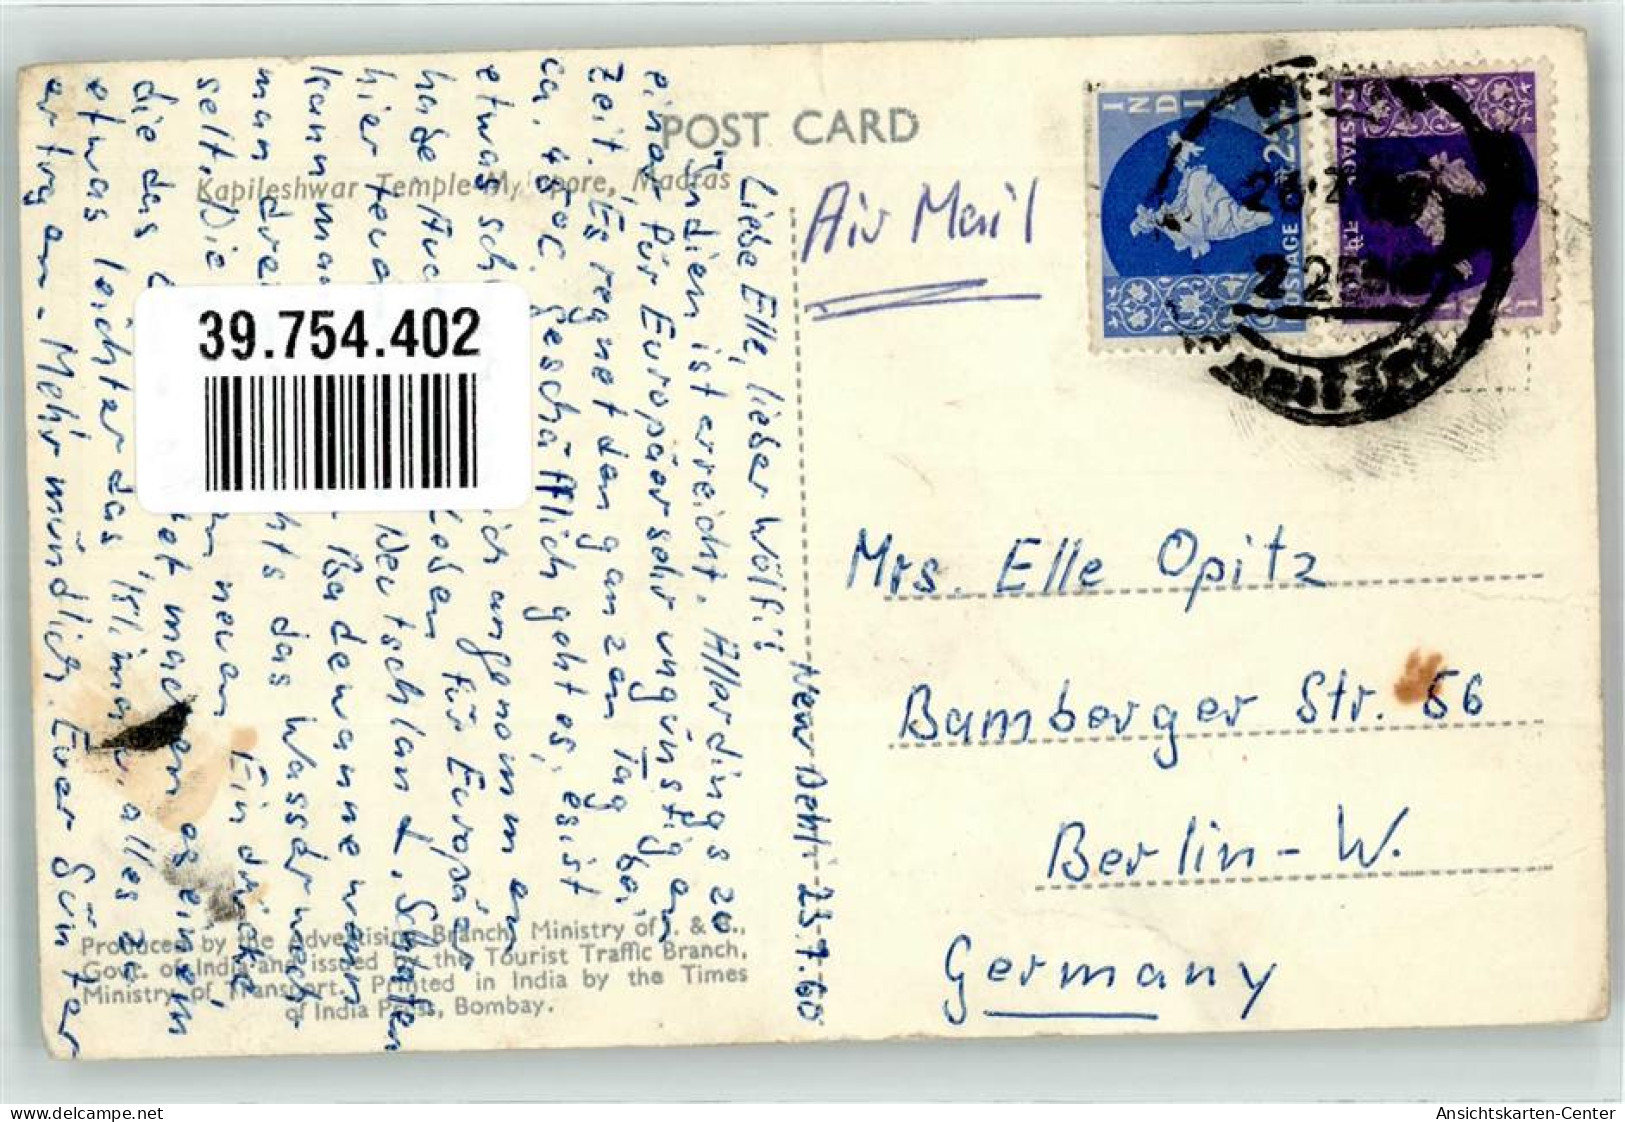 POST CARD
Kapileshwar Temple Mylapore, Madras
Air Mail
INDIA
25
POSTAGE
22
39.754.402
New Delhi 23.7.60
Liebe Elle, lieber Wölfi!
Indien ist erreicht. Allerdings zu
einer für Europäer sehr ungünstigen
Zeit. Es regnet den ganzen Tag bei
ca. 40°C. Geschäftlich geht es, es ist
etwas sch ich angenommen
habe. Auc Leben für Europäer
hier teu Deutschland. Schlafen
kann ma Badewanne wenn
man dre hts das Wasser wech-
selt. Die n neuen Eindrücke
die das L et machen es einem
etwas leichter das Klima, alles zu
ertragen. Mehr mündlich. Euer Günter
Mrs. Elle Opitz
Bamberger Str. 56
Berlin-W.
Germany
Produced by the Advertising Branch, Ministry of . & .,
Govt. of India and issued by the Tourist Traffic Branch,
Ministry of Transport. Printed in India by the Times
of India Press, Bombay.
www.delcampe.net
Ansichtskarten-Center